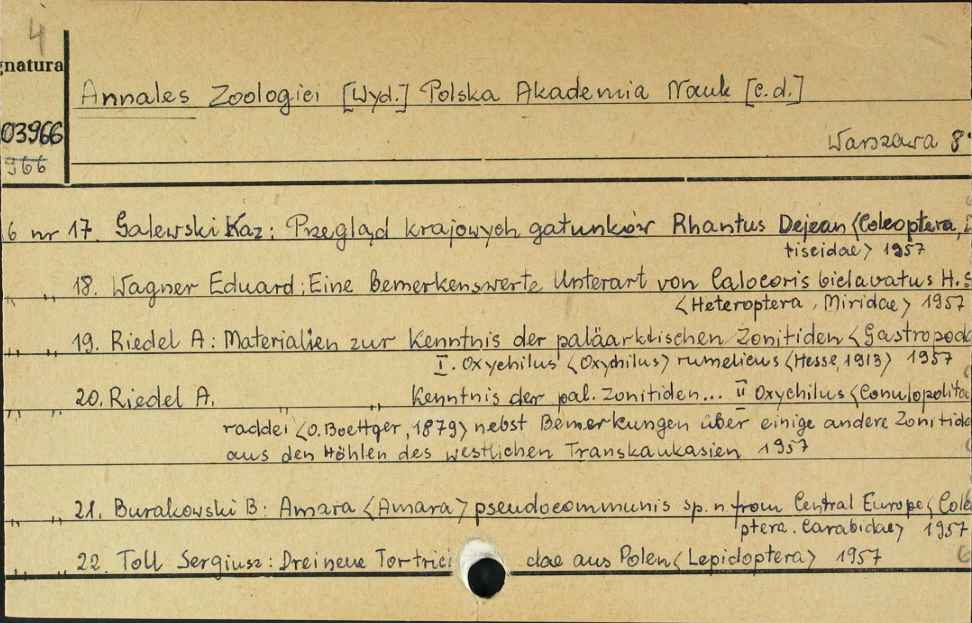 4
gnatura
Annales Zoologici [Wyd.] Polska Akademia Nauk [c.d.]
03966
Warszawa 8°
966
6 nr 17. Galewski Kaz: Przegląd krajowych gatunków Rhantus Dejean <Coleoptera,
tiscidae> 1957
" " 18. Wagner Eduard: Eine Bemerkenswerte Unterart von Calocoris biclavatus H.S
<Heteroptera, Miridae> 1957
" " 19. Riedel A: Materialien zur Kenntnis der paläarktischen Zonitiden <Gastropod
I. Oxychilus <Oxychilus> rumelicus <Hesse, 1913> 1957
" " 20. Riedel A. " " Kenntnis der pal. Zonitiden... II Oxychilus <Conulopolita
raddei <O. Boettger, 1879> nebst Bemerkungen über einige andere Zonitide
aus den Höhlen des westlichen Transkaukasien 1957
" " 21. Burakowski B: Amara <Amara> pseudocommunis sp. n from Central Europe <Cole
ptera. Carabidae> 1957
" " 22. Toll Sergiusz: Drei neue Tortrici dae aus Polen <Lepidoptera> 1957